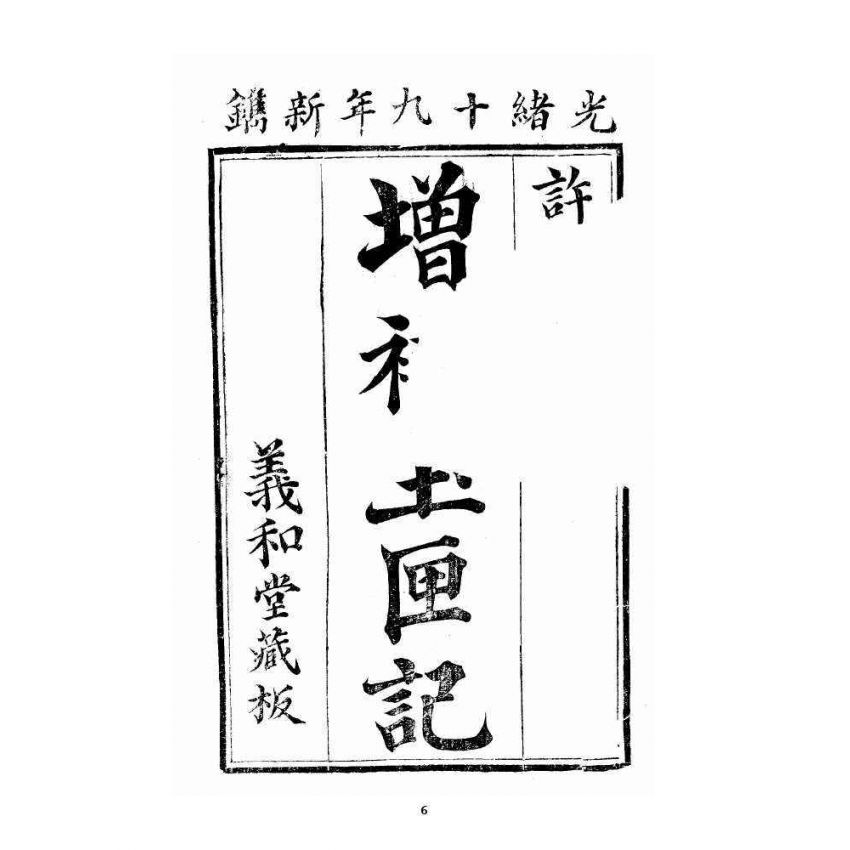 光緒十九年新鐫
許
增 土匣記
義和堂藏板
6